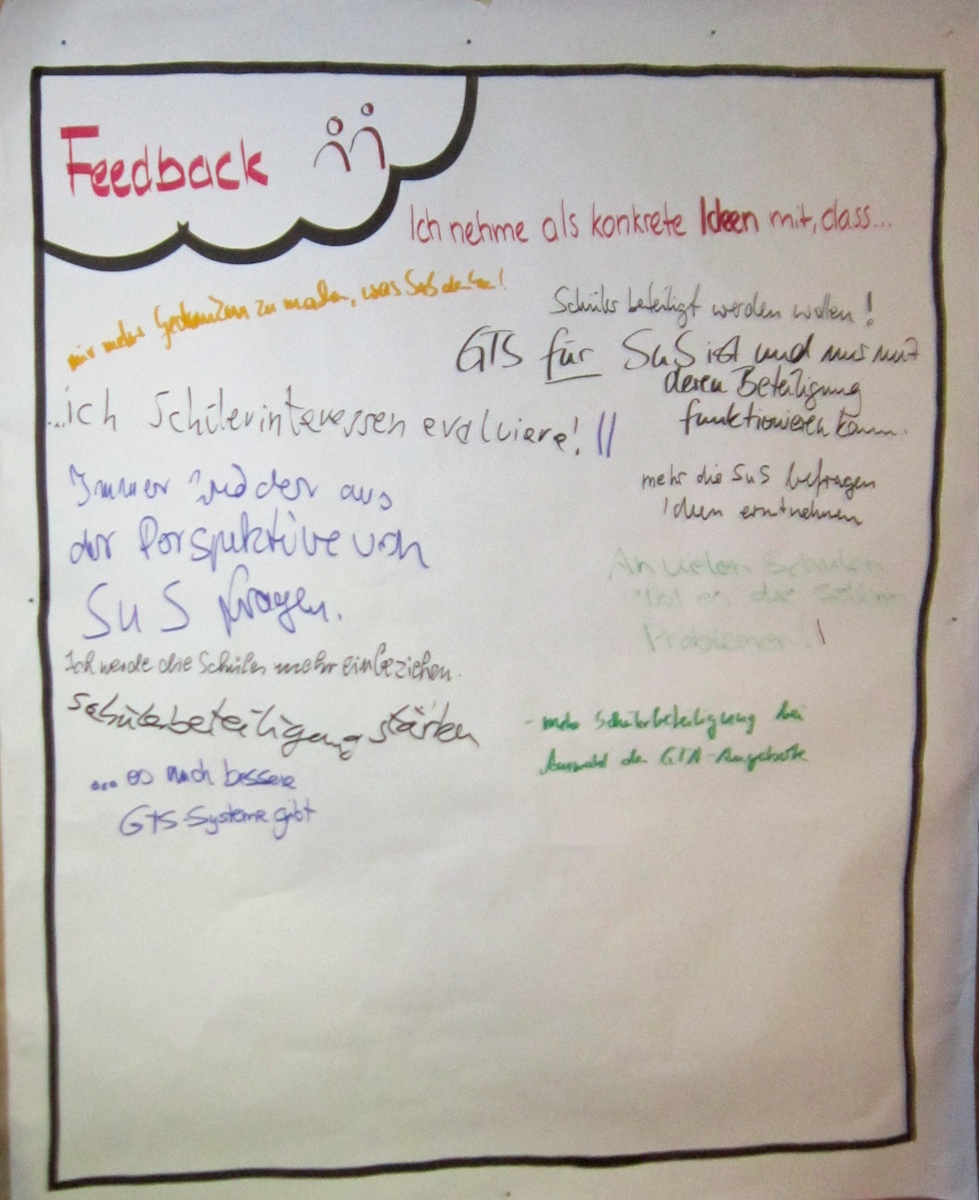 Feedback
Ich nehme als konkrete Ideen mit, dass...
mir mehr Gedanken zu machen, was SuS denken!
Schüler beteiligt werden wollen!
GTS für SuS ist und nur mit
deren Beteiligung
funktionieren kann.
...ich Schülerinteressen evaluiere! ||
mehr die SuS befragen
Ideen entnehmen
Immer wieder aus
der Perspektive von
SuS fragen.
An vielen Schulen
gibt es die selben
Probleme! |
Ich werde die Schüler mehr einbeziehen.
Schülerbeteiligung stärken
- mehr Schülerbeteiligung bei
Auswahl der GTA-Angebote
... es noch bessere
GTS-Systeme gibt